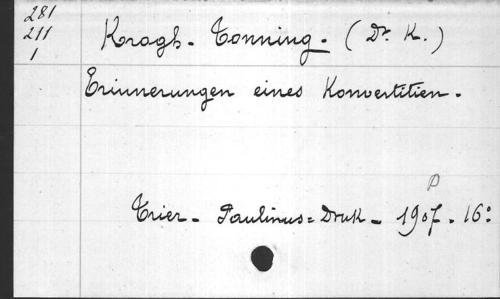 281
211
1
Krogh-Tonning. (Dr. K.)
Erinnerungen eines Konvertitien.
P
Trier. Paulinus=Druk. 1907. 16: